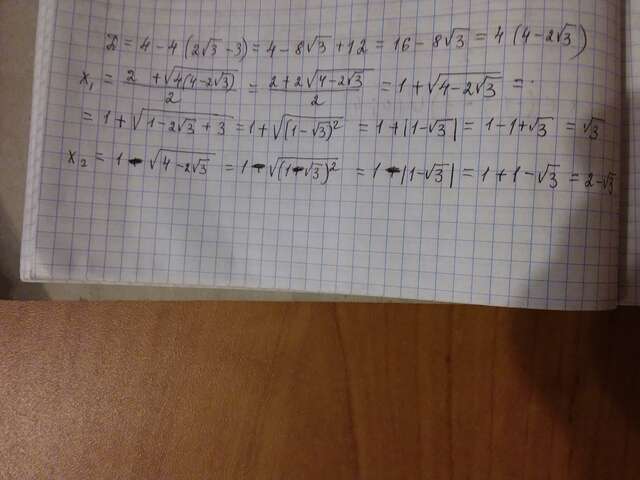 D = 4 - 4(2√3 - 3) = 4 - 8√3 + 12 = 16 - 8√3 = 4(4 - 2√3)
x₁ = (2 + √(4(4 - 2√3)))/2 = (2 + 2√(4 - 2√3))/2 = 1 + √(4 - 2√3) =
= 1 + √(1 - 2√3 + 3) = 1 + √((1 - √3)²) = 1 + |1 - √3| = 1 - 1 + √3 = √3
x₂ = 1 - √(4 - 2√3) = 1 - √((1 - √3)²) = 1 - |1 - √3| = 1 + 1 - √3 = 2 - √3